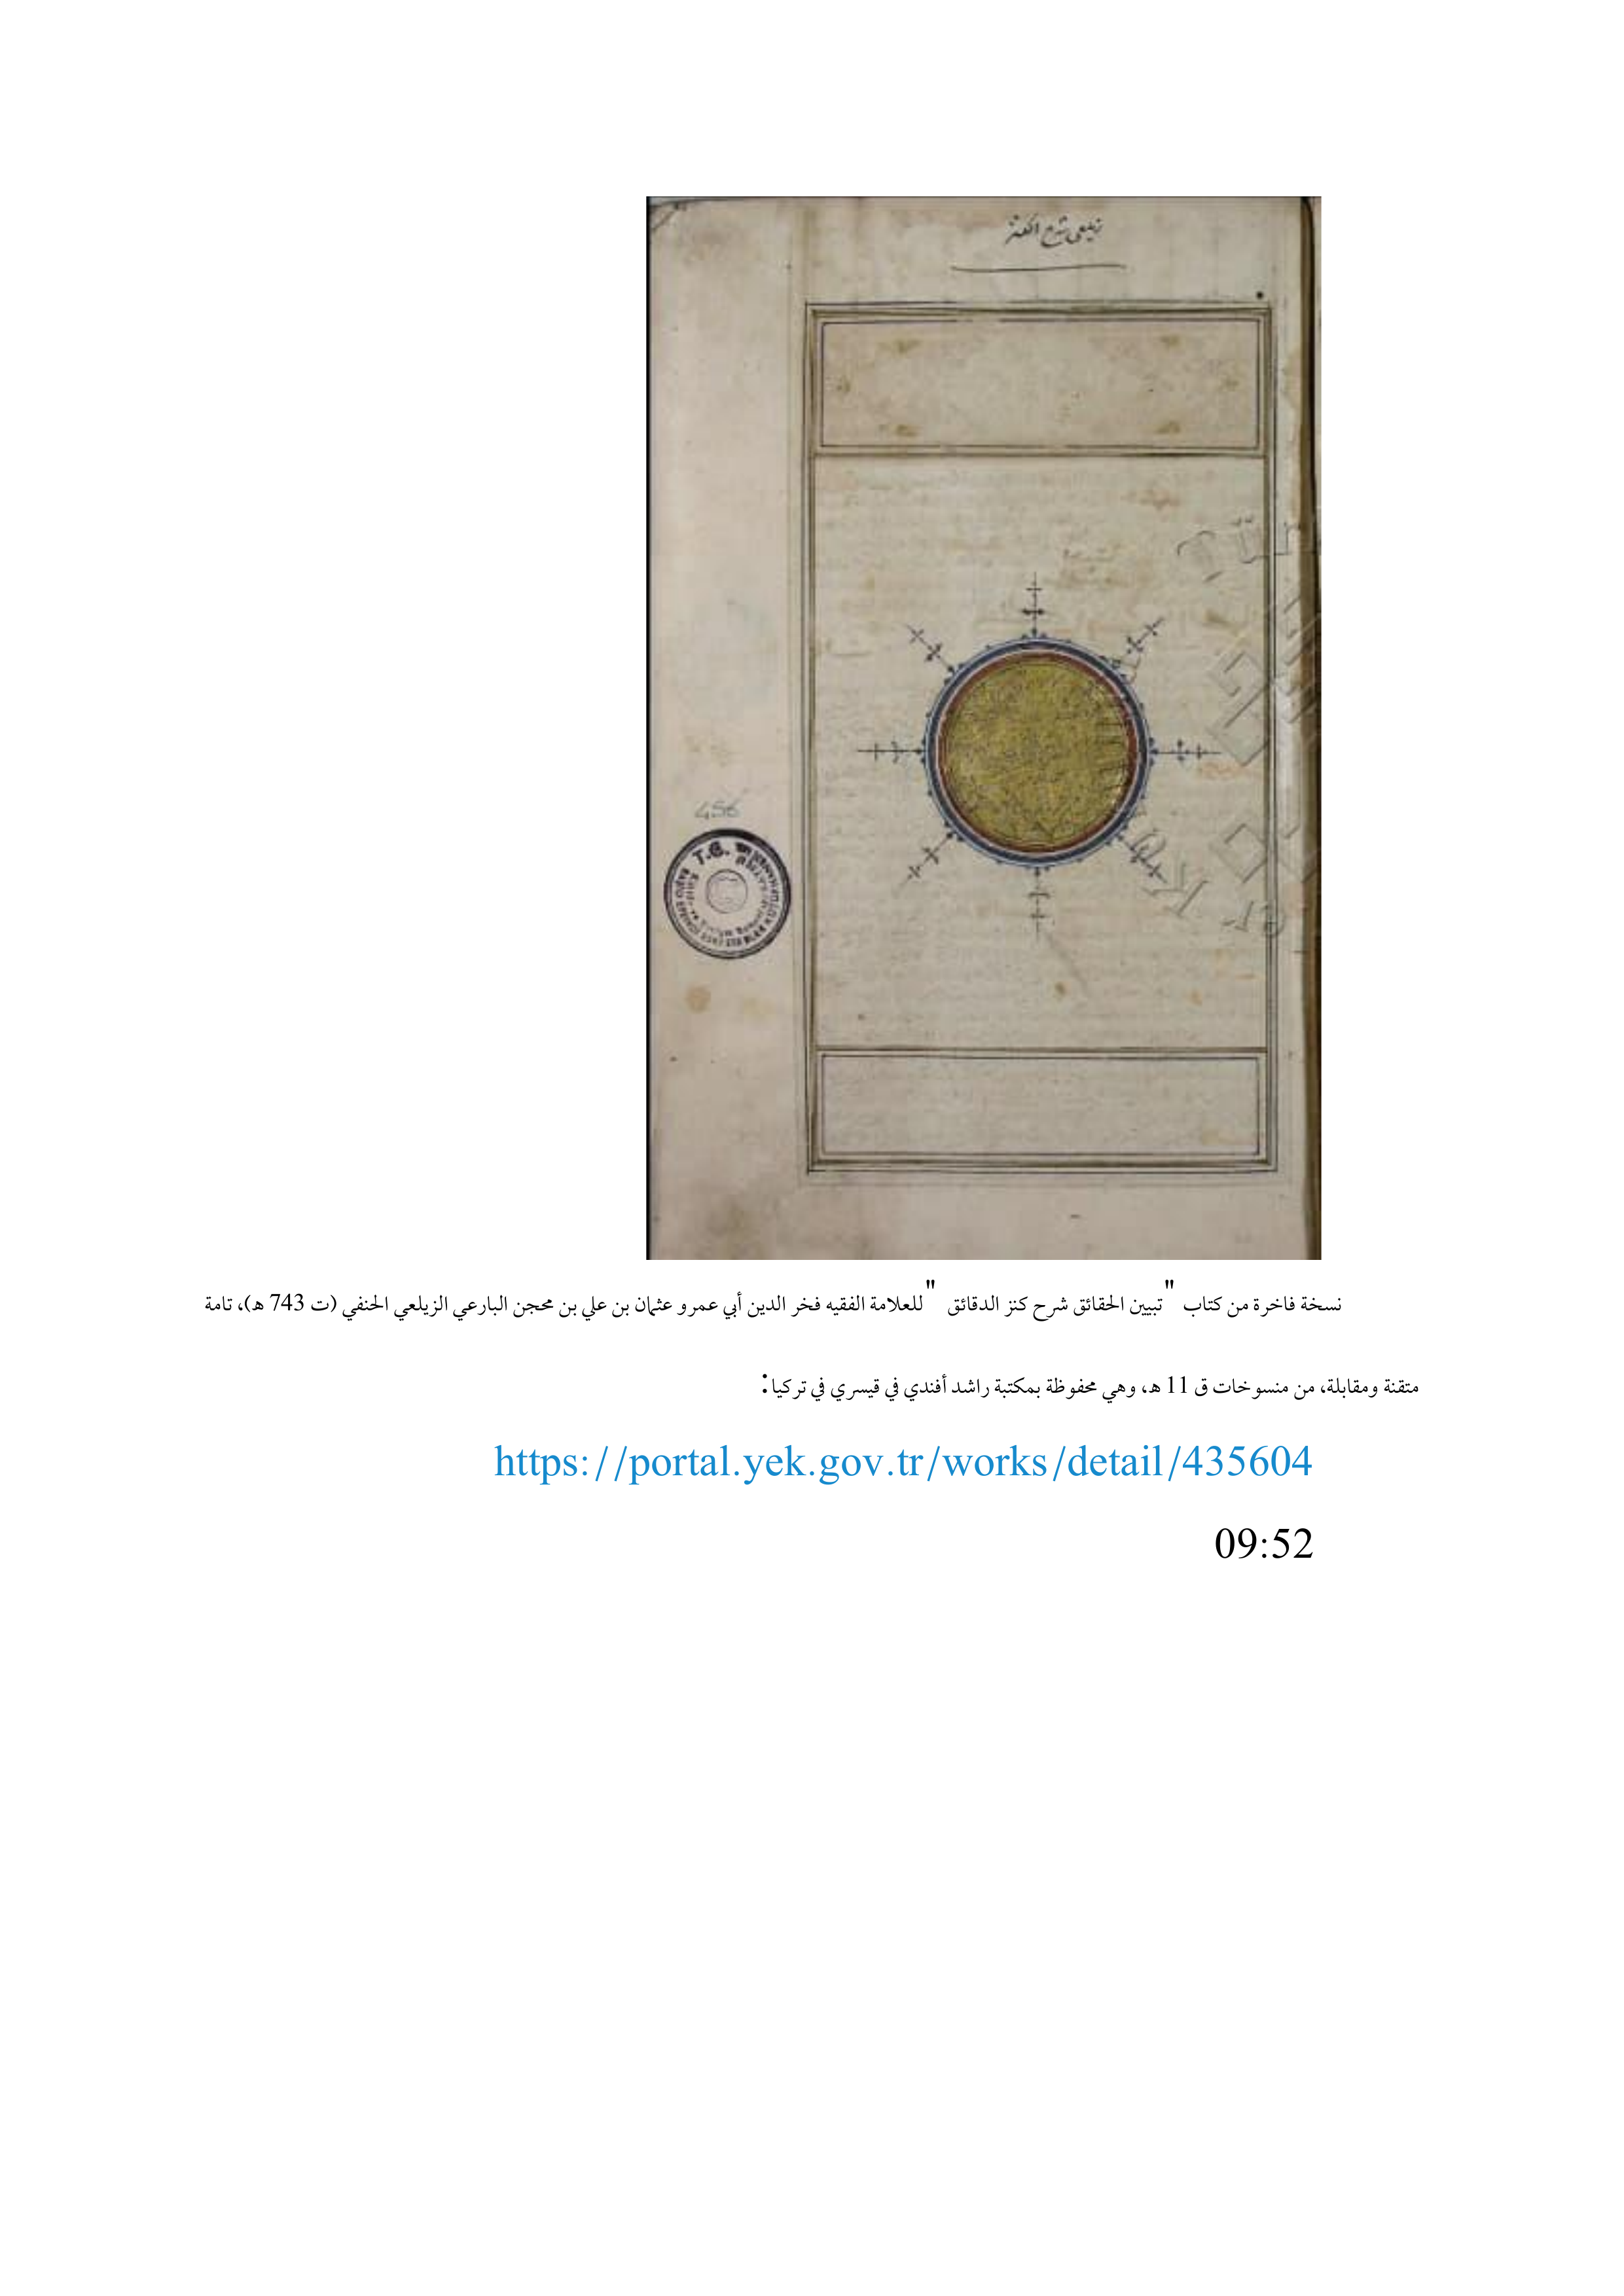 زيلعي شرح الكنز
456
T.C.
نسخة فاخرة من كتاب "تبيين الحقائق شرح كنز الدقائق" للعلامة الفقيه فخر الدين أبي عمرو عثمان بن علي بن محجن البارعي الزيلعي الحنفي (ت 743 هـ)، تامة
متقنة ومقابلة، من منسوخات ق 11 هـ، وهي محفوظة بمكتبة راشد أفندي في قيسري في تركيا:
https://portal.yek.gov.tr/works/detail/435604
09:52